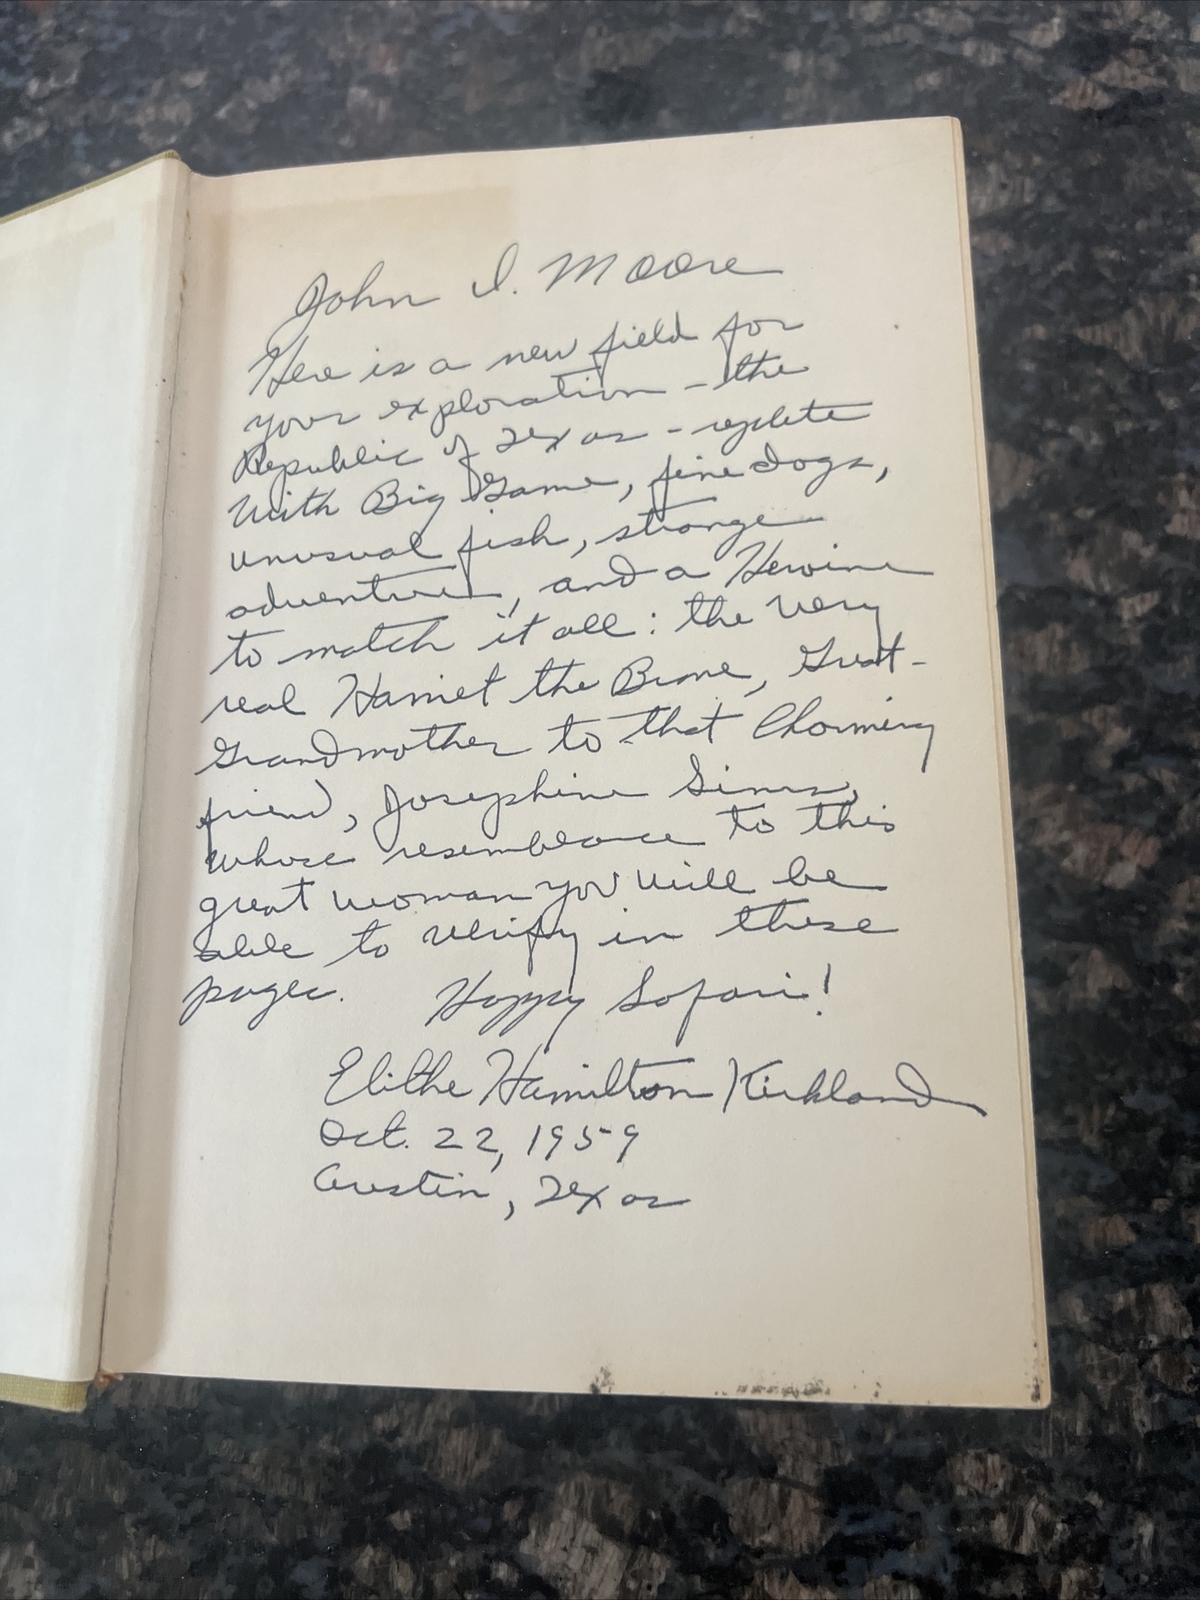 John I. Moore
Here is a new field for
your exploration - the
Republic of Texas - replete
with Big Game, fine dogs,
unusual fish, strange
adventure, and a Heroine
to match it all: the very
real Harriet the Brave, Great-
Grandmother to that Charming
friend, Josephine Sims,
whose resemblance to this
great woman you will be
able to verify in these
pages. Happy Safari!
Elithe Hamilton Kirkland
Oct. 22, 1959
Austin, Texas